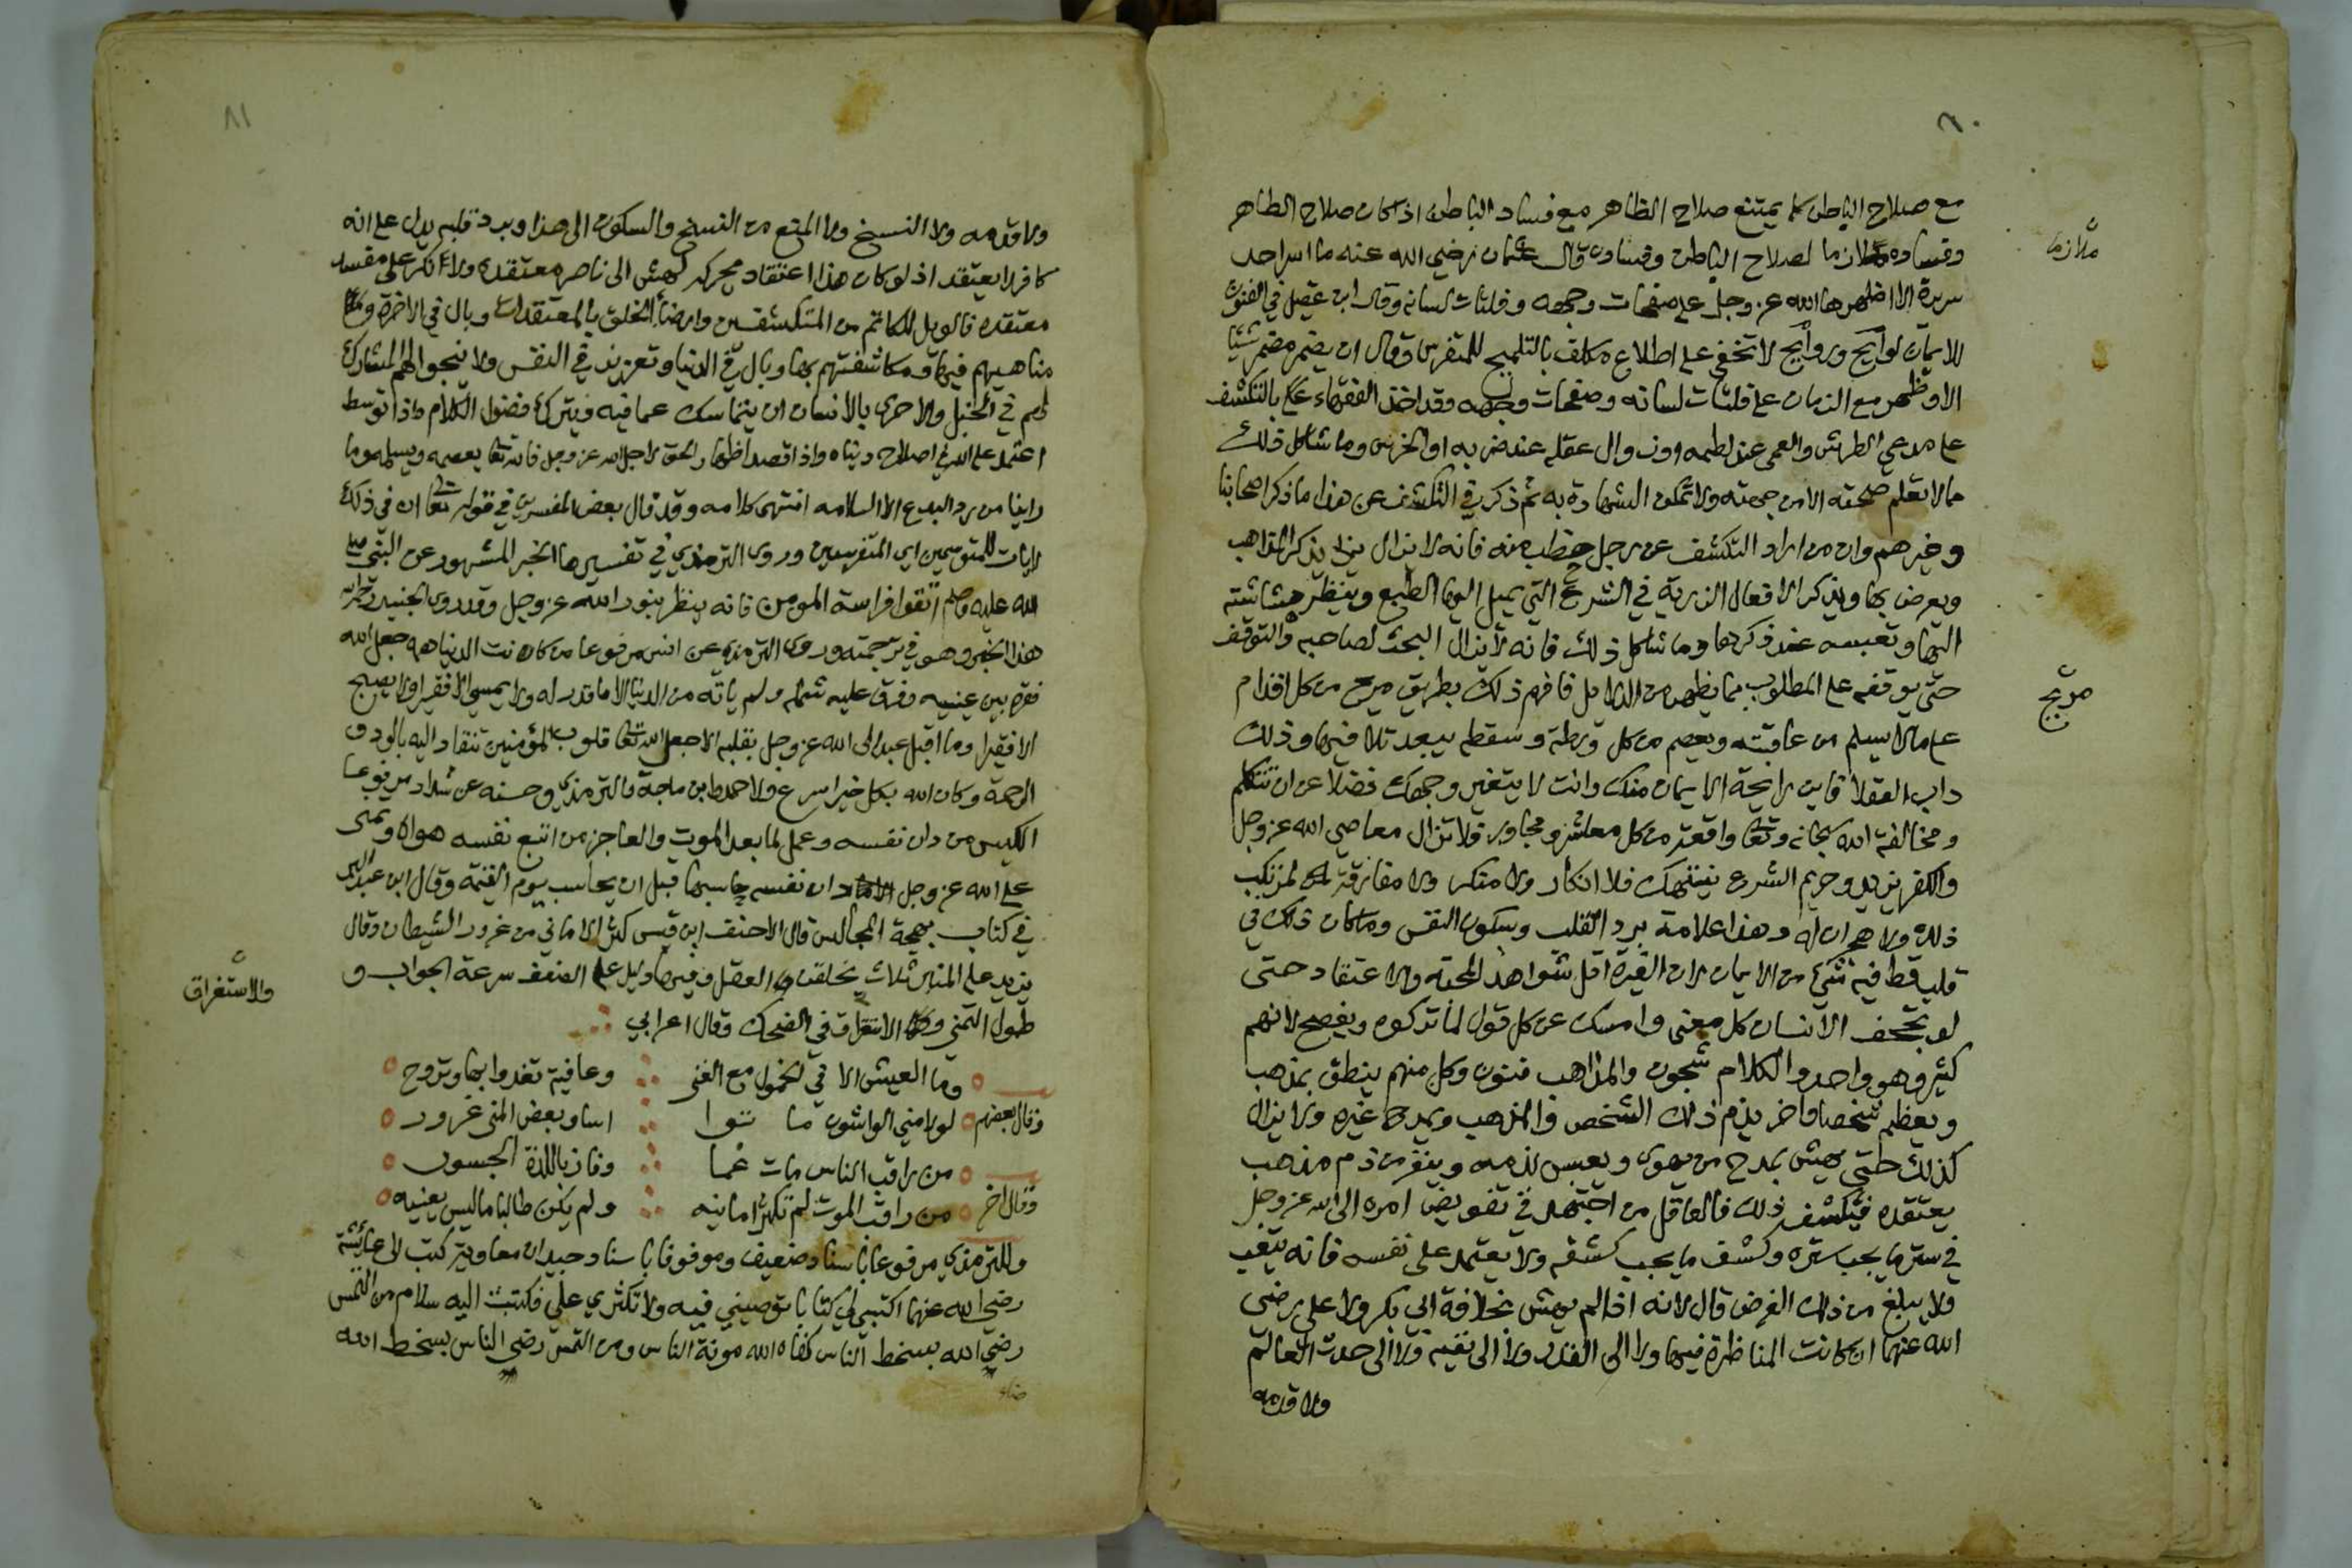 ٨٠
مع صلاح الباطن كما يمتنع صلاح الظاهر مع فساد الباطن اذا كان صلاح الظاهر
وفساده ملازما لصلاح الباطن وفساده قال عثمان رضي الله عنه ما اسر احد
ملازما
سريرة الا اظهرها الله عز وجل على صفحات وجهه وفلتات لسانه وقال ابن عقيل في الفنون
للايمان لوايح وروايح لا تخفى على اطلاع مكلف بالتلميح للمتفرس وقال ان يضمر مضمر شيئا
الا وظهر مع الزمان على فلتات لسانه وصفحات وجهه وقد اخذ الفقهاء بالتكشف
على مدعي الطرش والعمى عند لطمه او زوال عقله عند ضربه او الخرس وما شاكل ذلك
مما لا تعلم صحته الا من جهته ولا تمكن الشهادة به ثم ذكر في التكشف عن هذا ما ذكر اصحابنا
وغيرهم وان من اراد التكشف عن رجل خطب منه فانه لا يزال يذكر المذاهب
ويعرض بها ويذكر الافعال المزرية في الشرع التي يميل اليها الطبع وينظر هشاشته
اليها وتعبسه عند ذكرها وما شاكل ذلك فانه لا يزال البحث لصاحبه والتوقف
حتى يوقفه على المطلوب بما يظهر من الدلايل فافهم ذلك بطريق مريح من كل اقدام
مريح
على ما لا يسلم من عاقبته ويعصم من كل ورطة وسقطة يبعد تلافيها وذلك
داب العقلا فاين رايحة الايمان منك وانت لا يتغير وجهك فضلا عن ان تتكلم
ومخالفة الله سبحانه وتعالى واقعة من كل معاشر ومجاور فلا تزال معاصي الله عز وجل
والكفر يزيد وحريم الشرع ينتهك فلا انكار ولا منكر ولا مفارقة لمرتكب
ذلك ولا هجران له وهذا علامة برد القلب وسكون النفس وما كان ذلك في
قلب قط فيه شيء من الايمان لان الغيرة اقل شواهد المحبة والاعتقاد حتى
لو تحفف الانسان كل معنى وامسك عن كل قول لما تركوه ويفصح لانهم
كثير وهو واحد والكلام شجون والمذاهب فنون وكل منهم ينطق بمذهب
ويعظم شخصا واخر يذم ذلك الشخص والمذهب ويمدح غيره ولا يزال
كذلك حتى يهش بمدح من يهوى ويعبس لذمه وينفر من ذم مذهب
يعتقده فيكشف ذلك فالعاقل من اجتهد في تفويض امره الى الله عز وجل
في ستر ما يجب ستره وكشف ما يجب كشفه ولا يعتمد على نفسه فانه يتعب
ولا يبلغ من ذلك الغرض قال لانه اذا لم يهش لخلافة ابي بكر ولا علي رضي
الله عنهما ان كانت المناظرة فيها ولا الى القدر ولا الى نفيه ولا الى حدث العالم
ولا قدمه
٨١
ولا قدمه ولا النسخ ولا المنع من النسخ والسكون الى هذا وبرد قلبه يدل على انه
كافر لا يعتقد اذ لو كان هذا اعتقاد يحركه لهش الى ناصر معتقده ولا انكر على مفسد
معتقده فالويل للكاتم من المتكشفين وارضا الخلق بالمعتقدات وبال في الاخرة
مناهيهم فيها ومكاشفتهم بها وبال في الدنيا وتعزير في النفس ولا ينجو المشارك
لهم في الخبل والاحرى بالانسان ان يتماسك عما فيه ويترك فضول الكلام واذا توسط
اعتمد على الله في اصلاح دنياه واذا قصد اظهار الحق لاجل الله عز وجل فانه تعالى يعصمه ويسلمه وما
راينا من رد البدع الا السلامه انتهى كلامه وقد قال بعض المفسرين في قوله تعالى ان في ذلك
لايات للمتوسمين اي المتفرسين وروى الترمذي في تفسيرها الخبر المشهور عن النبي صلى
الله عليه وسلم اتقوا فراسة المومن فانه ينظر بنور الله عز وجل وقد روى الجنيد رحمه الله
هذا الخبر وهو في ترجمته وروى الترمذي عن انس مرفوعا من كانت الدنيا همه جعل الله
فقره بين عينيه وفرق عليه شمله ولم ياته من الدنيا الا ما قدر له ولا يمسي الا فقيرا ولا يصبح
الا فقيرا وما اقبل عبد الى الله عز وجل بقلبه الا جعل الله تعالى قلوب المؤمنين تنقاد اليه بالود و
الرحمة وكان الله بكل خير اسرع ولاحمد وابن ماجة والترمذي وحسنه عن شداد مرفوعا
الكيس من دان نفسه وعمل لما بعد الموت والعاجز من اتبع نفسه هواها وتمنى
على الله عز وجل دان نفسه حاسبها قبل ان يحاسب يوم القيمة وقال ابن عبد البر
في كتاب بهجة المجالس قال الاحنف ابن قيس كثرة الاماني من غرور الشيطان وقال
يزيد على المنبر ثلاث يخلقن العقل وفيها دليل على الضعف سرعة الجواب و
طول التمني والاستغراق في الضحك وقال اعرابي
والاستغراق
وما العيش الا في الخمول مع الغنى وعافية تغدوا بها وتروح
وقال بعضهم لولا منى الواشون ما اسا وبعض المنى غرور
من راقب الناس مات غما وفاز باللذة الجسور
وقال اخر من راقب الموت لم تكثر امانيه ولم يكن طالبا ما ليس يعنيه
وللترمذي مرفوعا باسناد ضعيف وموقوفا باسناد جيد ان معاوية كتب الى عائشة
رضي الله عنهما اكتبي لي كتابا توصيني فيه ولا تكثري علي فكتبت اليه سلام من التمس
رضى الله بسخط الناس كفاه الله مونة الناس ومن التمس رضى الناس بسخط الله